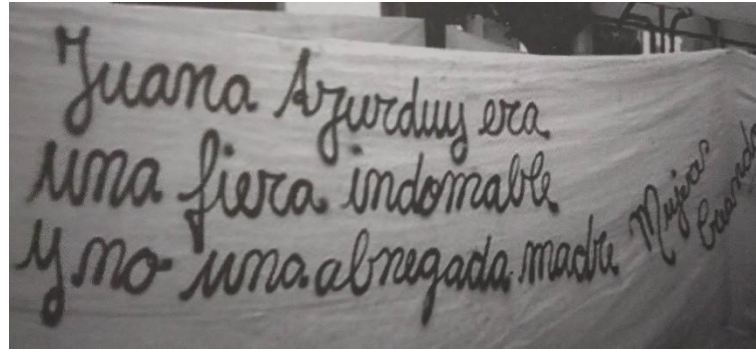 Juana Azurduy era
una fiera indomable
y no una abnegada madre
Mujeres
Creando